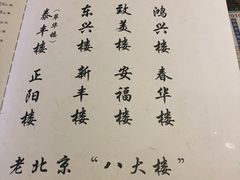 鸿兴楼
致美楼
东兴楼
（萃华楼）
泰丰楼
春华楼
安福楼
新丰楼
正阳楼
老北京“八大楼”